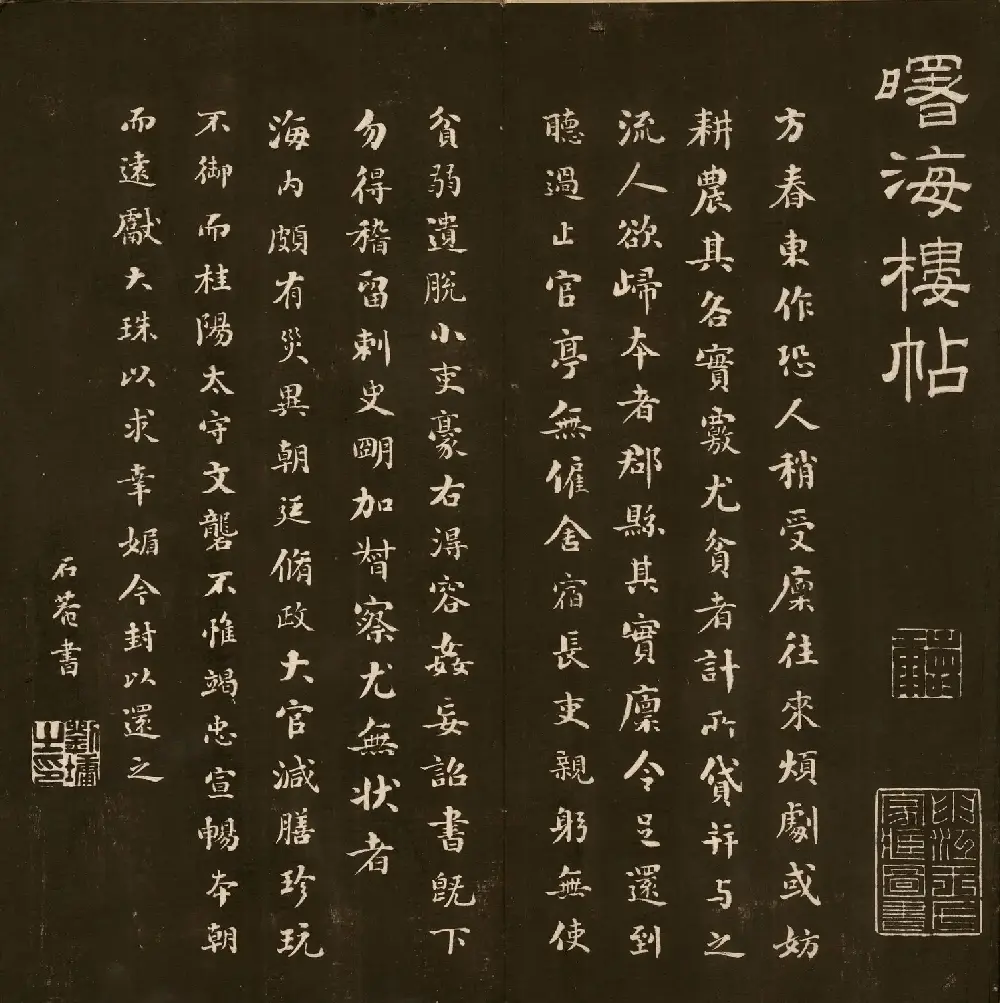 曙海樓帖
方春東作恐人稍受廩往來煩劇或妨
耕農其各實覈尤貧者計所貸并与之
流人欲歸本者郡縣其實廩令足還到
聽過止官亭無雇舍宿長吏親躬無使
貧弱遺脫小吏豪右得容姦妄詔書既下
勿得稽留刺史明加督察尤無狀者
海内頗有災異朝廷脩政大官減膳珍玩
不御而桂陽太守文礱不惟竭忠宣暢本朝
而遠獻大珠以求幸媚今封以還之
石菴書
劉墉之印